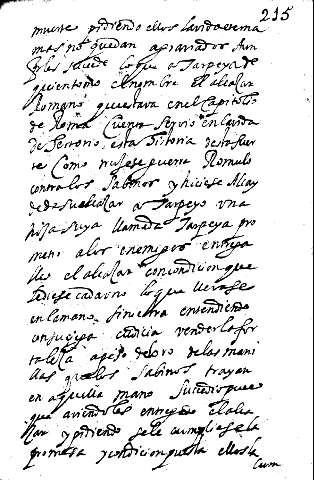 215
muerte pidiendo ellos la vida o en a
mas no quedan agraviados aun
les sucede lo que a Tarpeya de
quien tomo el nombre el alcazar
Romano que estava en el Capitolio
de Roma Cuenta Servio en la vida
de esta historia desta suer
te Como tuviese guerra Romulo
contra los Sabinos y hiciese Alcay
de de su alcazar a Tarpeyo una
hija suya llamada Tarpeya pro
metio a los enemigos entrega
lles el alcazar con condicion que
le diese cada uno lo que llevase
en la mano siniestra entendiendo
con codicia vender la for
taleça a peso de oro de las mani
llas que los Sabinos trayan
en aquella mano Sucedio pues
que aviendoles entregado el alca
zar y pidiendo se le cumpliese la
promesa y condicion puesta ellos la
cum